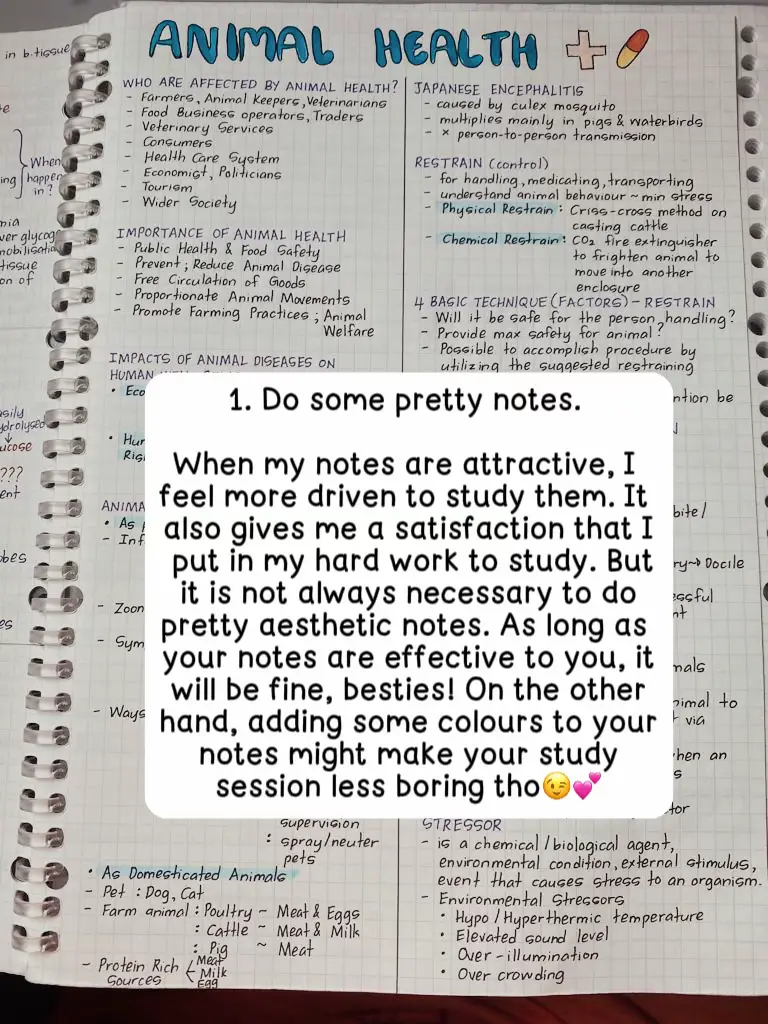 ANIMAL HEALTH
in b.tissue
When
happen
in?
ing
mia
ver glycog
mobilisatio
tissue
on of
asily
ydrolysed
ucose
???
ent
obes
es
WHO ARE AFFECTED BY ANIMAL HEALTH?
- Farmers, Animal Keepers, Veterinarians
- Food Business operators, Traders
- Veterinary Services
- Consumers
- Health Care System
- Economist, Politicians
- Tourism
- Wider Society
IMPORTANCE OF ANIMAL HEALTH
- Public Health & Food Safety
- Prevent ; Reduce Animal Disease
- Free Circulation of Goods
- Proportionate Animal Movements
- Promote Farming Practices ; Animal
Welfare
IMPACTS OF ANIMAL DISEASES ON
HUMAN
• Eco
• Hur
Ris
ANIMA
• As
- Inf
- Zoon
- Sym
- Ways
supervision
: spray/neuter
pets
• As Domesticated Animals
- Pet : Dog, Cat
- Farm animal : Poultry ~ Meat & Eggs
: Cattle ~ Meat & Milk
: Pig ~ Meat
- Protein Rich Sources
Meat
Milk
Egg
JAPANESE ENCEPHALITIS
- caused by culex mosquito
- multiplies mainly in pigs & waterbirds
- × person-to-person transmission
RESTRAIN (control)
- for handling, medicating, transporting
- understand animal behaviour ~ min stress
- Physical Restrain : Criss-cross method on
casting cattle
- Chemical Restrain : CO₂ fire extinguisher
to frighten animal to
move into another
enclosure
4 BASIC TECHNIQUE (FACTORS) - RESTRAIN
- Will it be safe for the person handling?
- Provide max safety for animal?
- Possible to accomplish procedure by
utilizing the suggested restraining
ntion be
bite/
ry→ Docile
ssful
nt
mals
nimal to
via
hen an
s
tor
STRESSOR
- is a chemical / biological agent,
environmental condition, external stimulus,
event that causes stress to an organism.
- Environmental Stressors
• Hypo / Hyperthermic temperature
• Elevated sound level
• Over-illumination
• Over crowding
1. Do some pretty notes.
When my notes are attractive, I
feel more driven to study them. It
also gives me a satisfaction that I
put in my hard work to study. But
it is not always necessary to do
pretty aesthetic notes. As long as
your notes are effective to you, it
will be fine, besties! On the other
hand, adding some colours to your
notes might make your study
session less boring tho😉💕